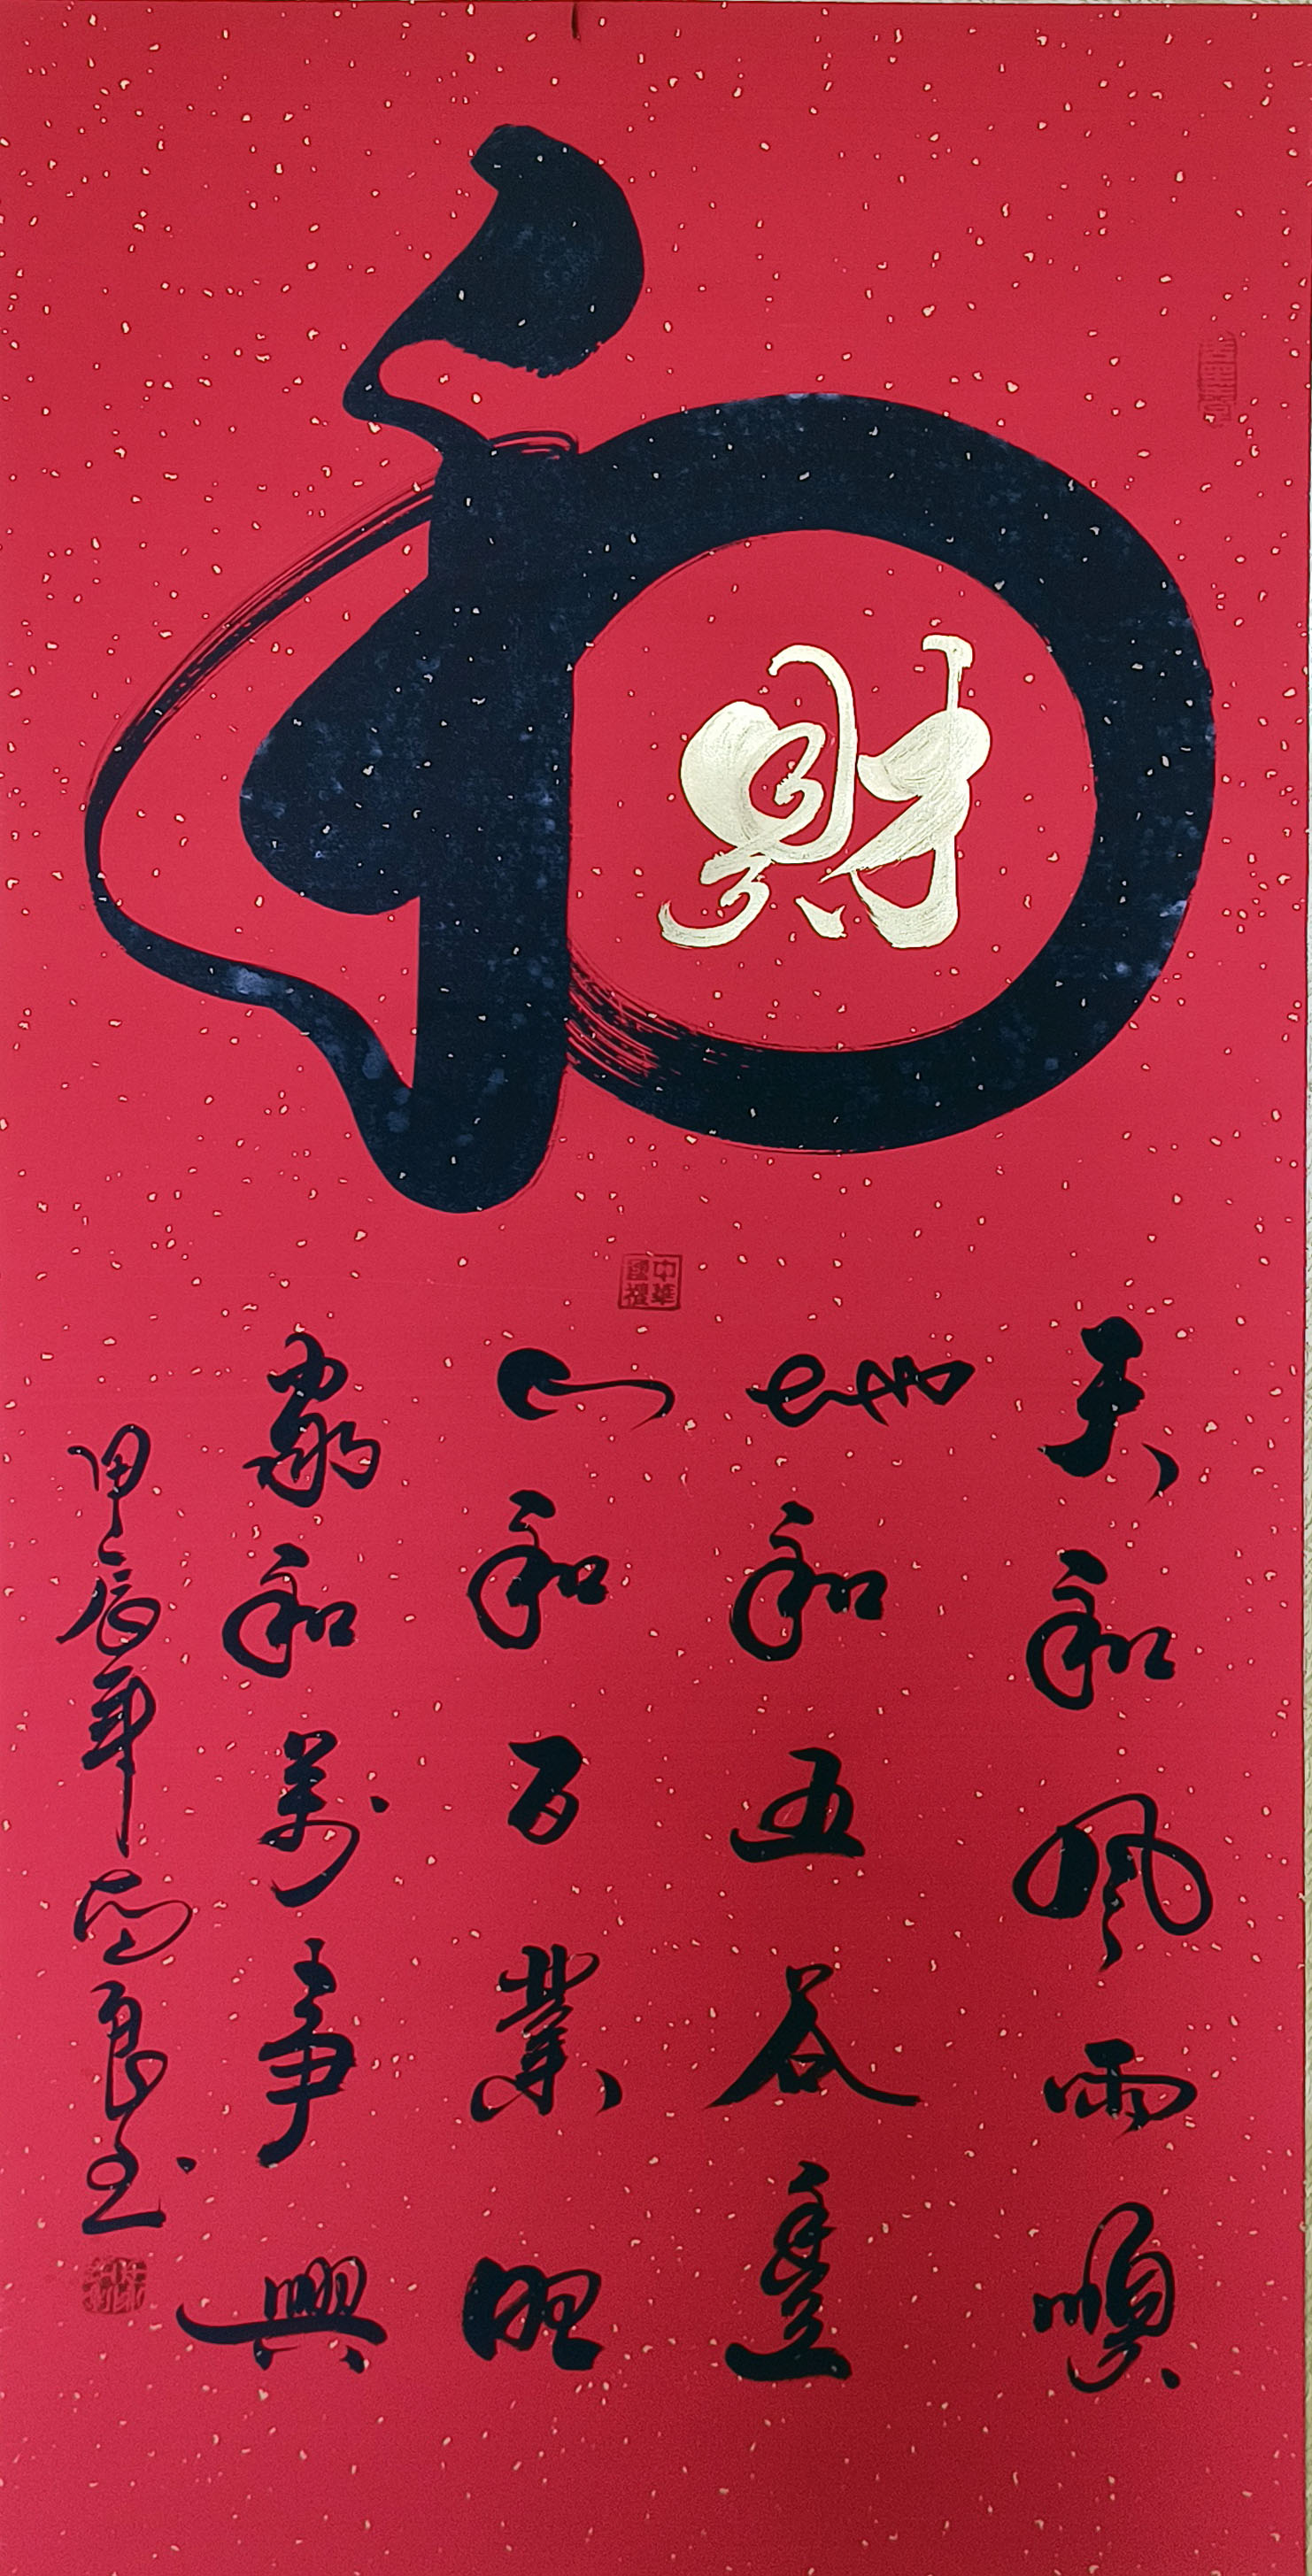 和
財
中華國禮
天和風雨順
地和五谷豐
人和百業旺
家和萬事興
甲辰年良书